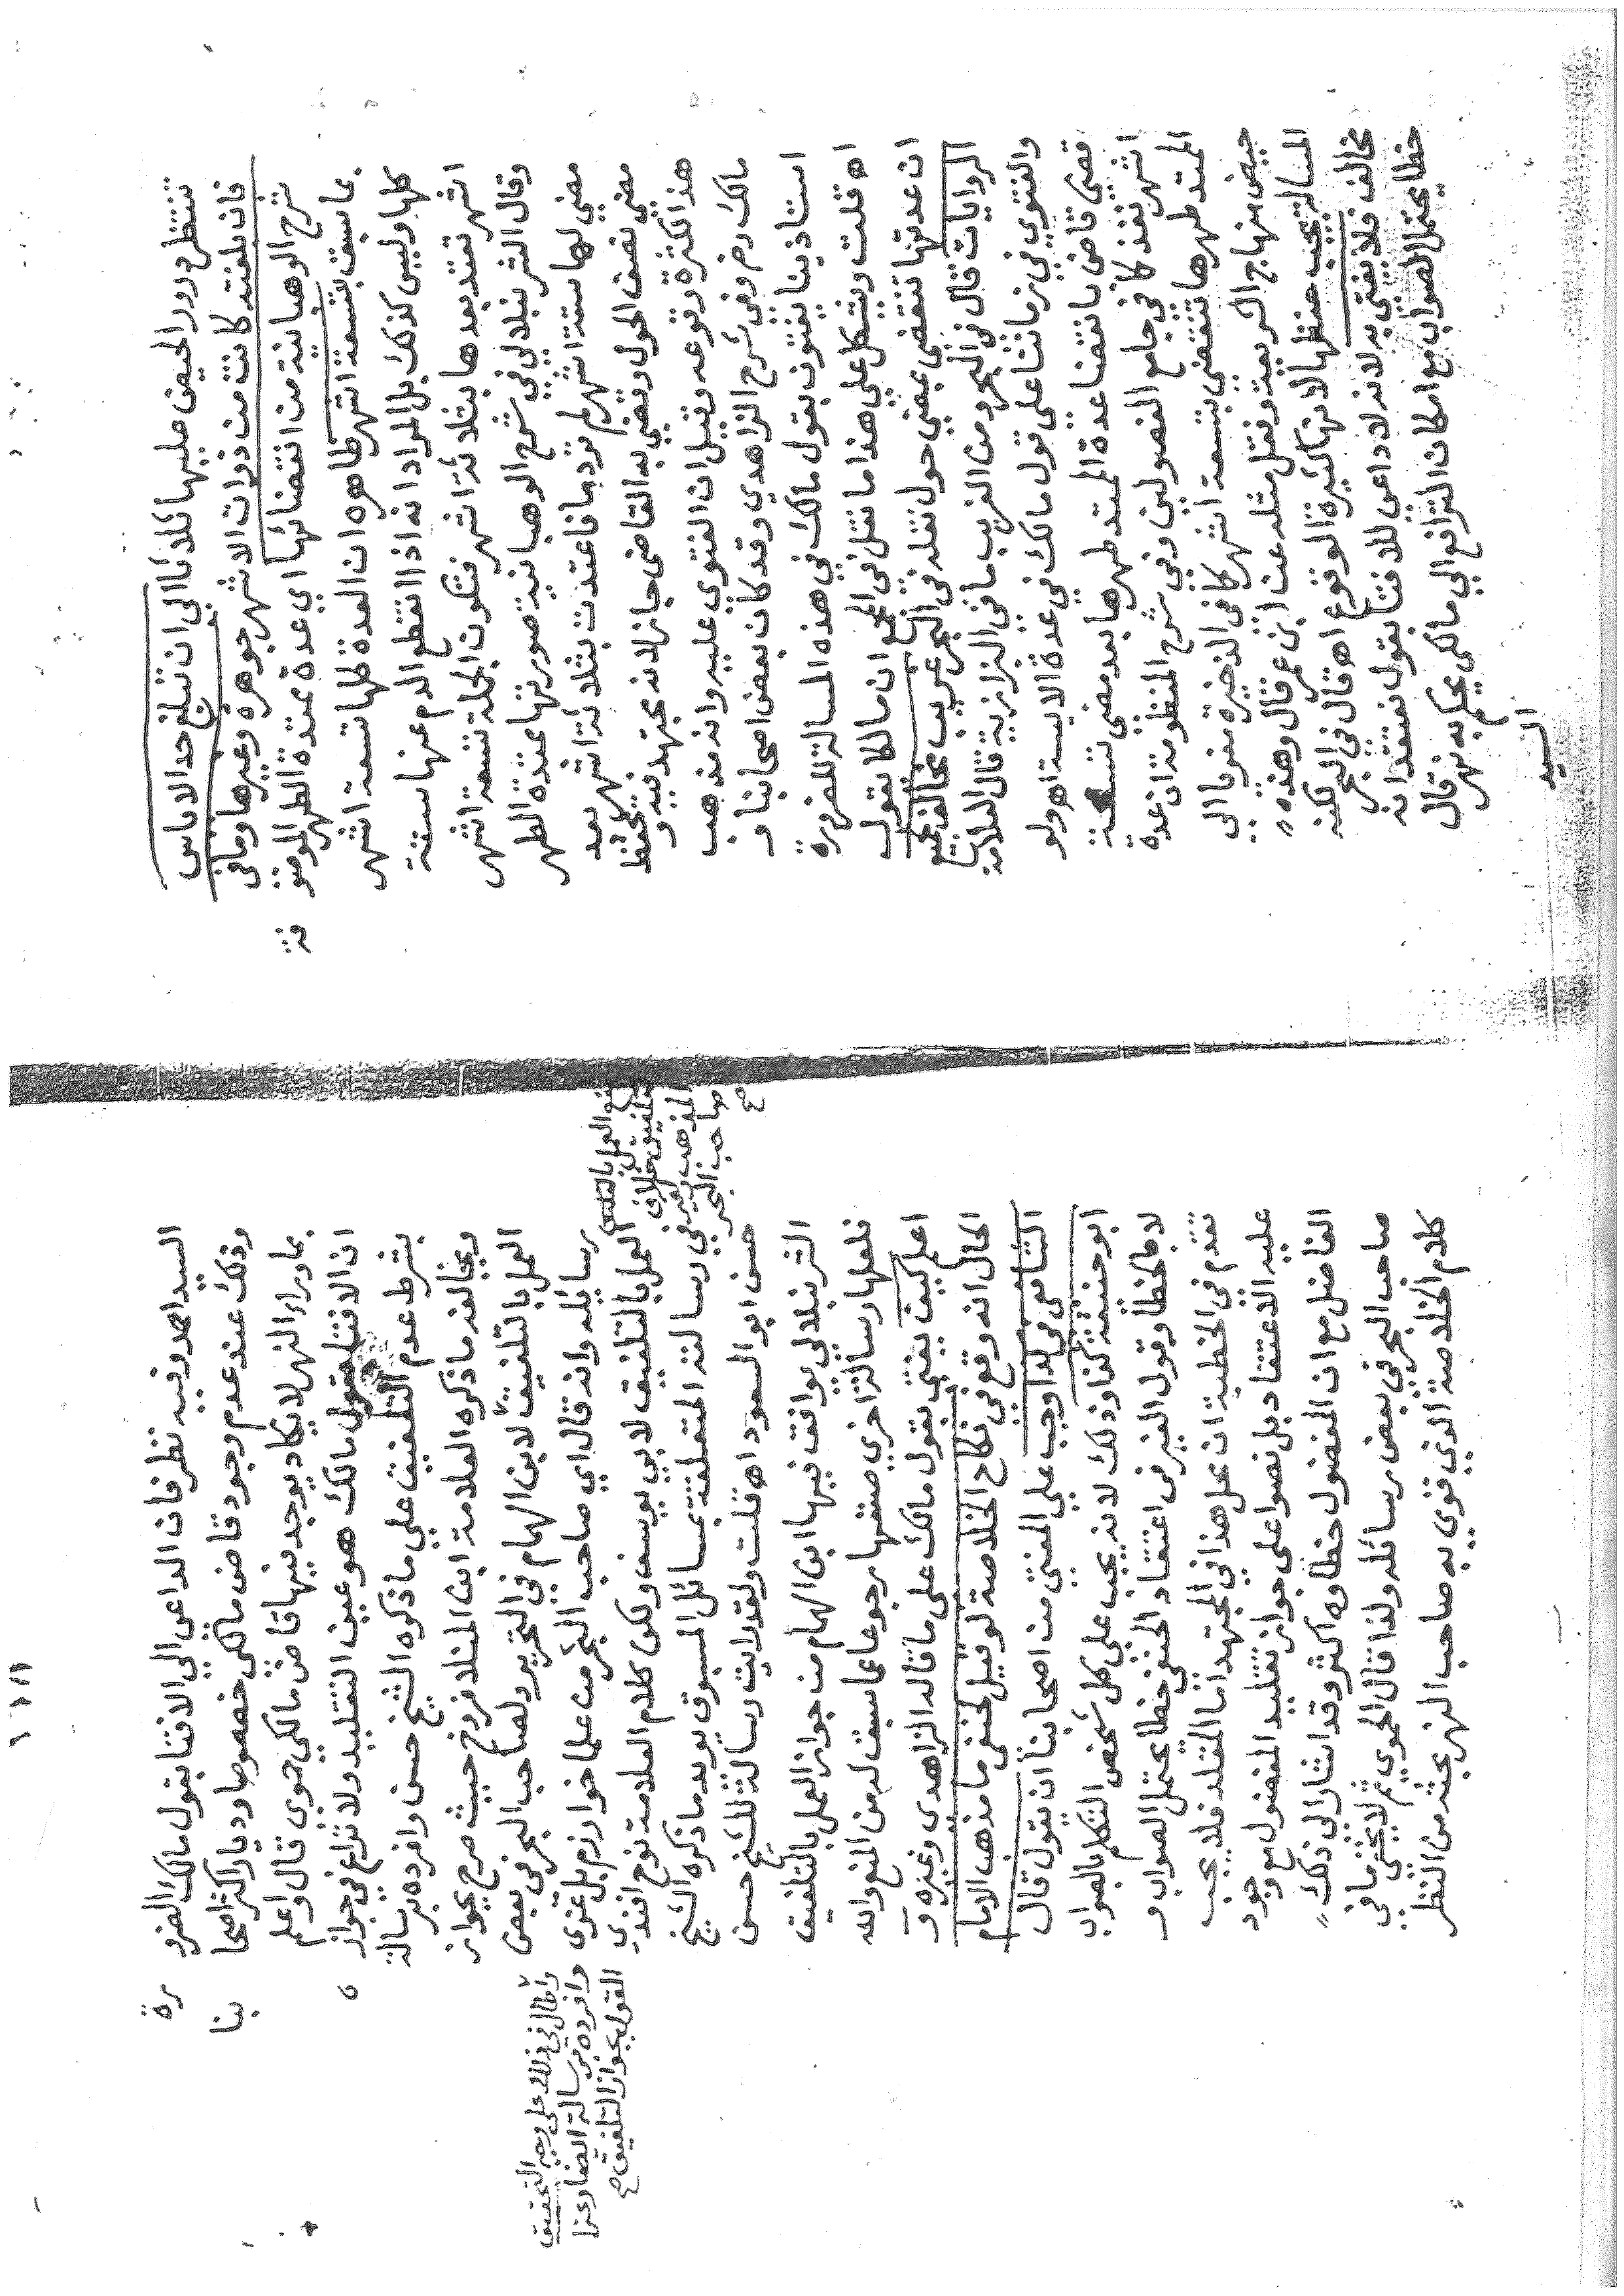 تنتظر عود الحيض عليها ثلاثا الى ان تبلغ حد الاياس
فان بلغته كانت من ذوات الاشهر جوهرة وغيرها وما في
شرح الوهبانية من انقضائها اي عدة ممتدة الطهر الموصو فة
بما سبق بتسعة اشهر ظاهره ان العدة كلها تسعة اشهر
كلها وليس كذلك بل المراد انه اذا انقطع الدم عنها ستة
اشهر تعتد بعدها بثلاثة اشهر فتكون الجملة تسعة اشهر
وقال الشرنبلالي في شرح الوهبانية صورتها ممتدة الطهر
مضي لها ستة اشهر لم تر دما فاعتدت بثلاثة اشهر بعد
مضي نصف الحول وقضي به القاضي جاز لانه مجتهد فيه ويحفظ
هذا لكثرة وقوعه وقيل ان الفتوي عليه وانه مذهب
مالك رض وفي شرح الزاهدي وقد كان بعض اصحابنا و
استاذينا يفتون بقول مالك في هذه المسالة للضرورة
اه قلت ويشكل علي هذا ما نقل في المجمع ان مالكا يقول
ان عدتها تنقضي بمضي حول نقله في البحر غريب مخالف لجميع
الروايات قال في البحر ومن الغريب ما في البزازية قال العلامة
والفتوي في زماننا على قول مالك في عدة الايسة اه ولو
قضى قاض بانقضا عدة الممتد طهرها بعد مضي تسعة
اشهر نفذ كما في جامع الفصولين وفي شرح المنظومة ان عدة
الممتد طهرها تنقضي بتسعة اشهر كما في الذخيرة معزيا الى
حيض منهاج الشريعة ونقل مثله عن ابن عمر قال وهذه
المسالة يجب حفظها لانها كثيرة الوقوع اه قال في البحر لكنه
مخالف فلا يفتى به لانه لا داعى للافتا بقول نعتقد انه
خطا يحتمل الصواب مع امكان الترافع الي مالكي يحكم به نهر قال
السيد
السيد احمد وفيه نظر فان الداعى الي الافتا بقول مالك الضرو رة
وذلك عند عدم وجود قاض مالكي خصوصا وديار اكثر اصحا بنا
بما وراء النهر لا يكاد يوجد فيها قاض مالكي حموي قال واعلم
ان الافتا بقول مالك هو عين التقليد ولا نزاع في جواز ه
بشرط عدم التلفيق علي ما ذكره الشيخ حسن وافرده برسالة
ويخالفه ما ذكره العلامة ابن المنلا فروخ حيث صرح بجواز
العمل بالتلفيق لابن الهمام في التحرير ولصاحب البحر في بعض
رسائله وانه قال اي صاحب البحر من علما خوارزم بل عزي
العمل بالتلفيق لابي يوسف ولكن كلام العلامة نوح افندي
في رسالته المتعلقة بمسائل المسبوق يويد ما ذكره الشيخ
حسن ابو السعود اه قلت ولقد رايت رسالة للشيخ حسن
الشرنبلالي يوافق فيها ابن الهمام من جواز العمل بالتلفيق
فلعلها رسالة اخري صنفها رجوعا عما سبق له من المنع والله
اعلم كيف يفتى بقول مالك على ما قاله الزاهدي وغيره و
الحال انه وقع في نكاح الخلاصة لو قيل لحنفي ما مذهب الامام
الشافعي في كذا وجب علي المفتي من اصحابنا ان يقول قال
ابو حنيفة كذا وذلك لانه يجب على كل شخص التكلم بالصواب
لا بالخطا وقول الغير في اعتقاد الحنفي خطا يحتمل الصواب و
تقدم في الخطبة ان محل هذا في المجتهد اما المقلد فلا يجب
عليه الاعتقاد بل نصوا على جواز تقليد المفضول مع وجود
الفاضل مع ان المفضول خطاوه اكثر وقد اشار الى ذلك
صاحب البحر في بعض رسائله ولذا قال الحموي ثم لا يخفى ما في
كلام الخلاصة الذي قوي به صاحب النهر بحثه من النظر
العمل بالتلفيق خلاف
المذهب
صاحب البحر
صح
واطال في ذلك على وجه التحقيق
وافرده برسالة ايضا وعزا
القول بجواز التلفيق صح